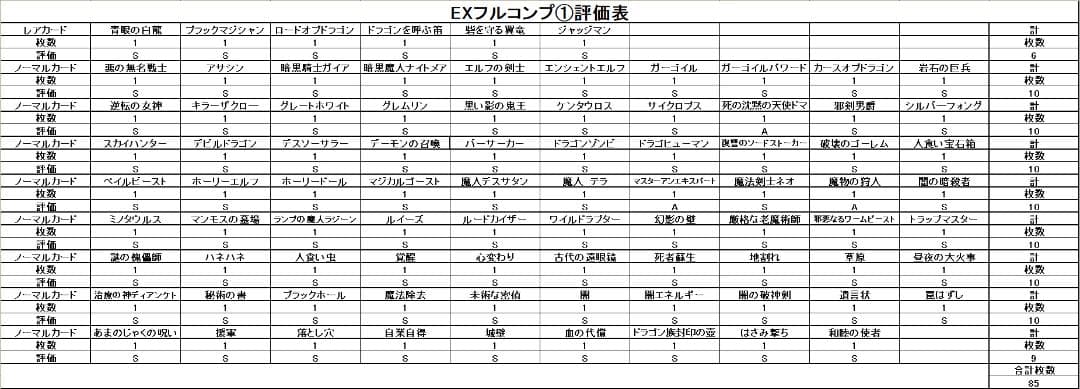 EXフルコンプ①評価表
レアカード 青眼の白龍 ブラックマジシャン ロードオブドラゴン ドラゴンを呼ぶ笛 砦を守る翼竜 ジャッジマン 計
枚数 1 1 1 1 1 1 枚数
評価 S S S S S S 6
ノーマルカード 悪の無名戦士 アサシン 暗黒騎士ガイア 暗黒魔人ナイトメア エルフの剣士 エンシェントエルフ ガーゴイル ガーゴイルパワード カースオブドラゴン 岩石の巨兵 計
枚数 1 1 1 1 1 1 1 1 1 1 枚数
評価 S S S S S S S S S S 10
ノーマルカード 逆転の女神 キラーザクロー グレートホワイト グレムリン 黒い影の鬼王 ケンタウロス サイクロプス 死の沈黙の天使ドマ 邪剣男爵 シルバーフォング 計
枚数 1 1 1 1 1 1 1 1 1 1 枚数
評価 S S S S S S S A S S 10
ノーマルカード スカイハンター デビルドラゴン デスソーサラー デーモンの召喚 バーサーカー ドラゴンゾンビ ドラゴヒューマン 復讐のソードストーカー 破壊のゴーレム 人食い宝石箱 計
枚数 1 1 1 1 1 1 1 1 1 1 枚数
評価 S S S S S S S S S S 10
ノーマルカード ペイルビースト ホーリーエルフ ホーリードール マジカルゴースト 魔人デスサタン 魔人 テラ マスターアンドエキスパート 魔法剣士ネオ 魔物の狩人 闇の暗殺者 計
枚数 1 1 1 1 1 1 1 1 1 1 枚数
評価 S S S S S S A S A S 10
ノーマルカード ミノタウルス マンモスの墓場 ランプの魔人ラジーン ルイーズ ルードカイザー ワイルドラプター 幻影の壁 厳格な老魔術師 邪悪なるワームビースト トラップマスター 計
枚数 1 1 1 1 1 1 1 1 1 1 枚数
評価 S S S S S S S S S S 10
ノーマルカード 謎の傀儡師 ハネハネ 人食い虫 覚醒 心変わり 古代の遠眼鏡 死者蘇生 地割れ 草原 昼夜の大火事 計
枚数 1 1 1 1 1 1 1 1 1 1 枚数
評価 S S S S S S S S S S 10
ノーマルカード 治療の神ディアンケト 秘術の書 ブラックホール 魔法除去 未熟な密偵 闇 闇エネルギー 闇の破神剣 遺言状 罠はずし 計
枚数 1 1 1 1 1 1 1 1 1 1 枚数
評価 S S S S S S S S S S 10
ノーマルカード あまのじゃくの呪い 援軍 落とし穴 自業自得 城壁 血の代償 ドラゴン族封印の壺 はさみ撃ち 和睦の使者 計
枚数 1 1 1 1 1 1 1 1 1 枚数
評価 S S S S S S S S S 9
合計枚数
85